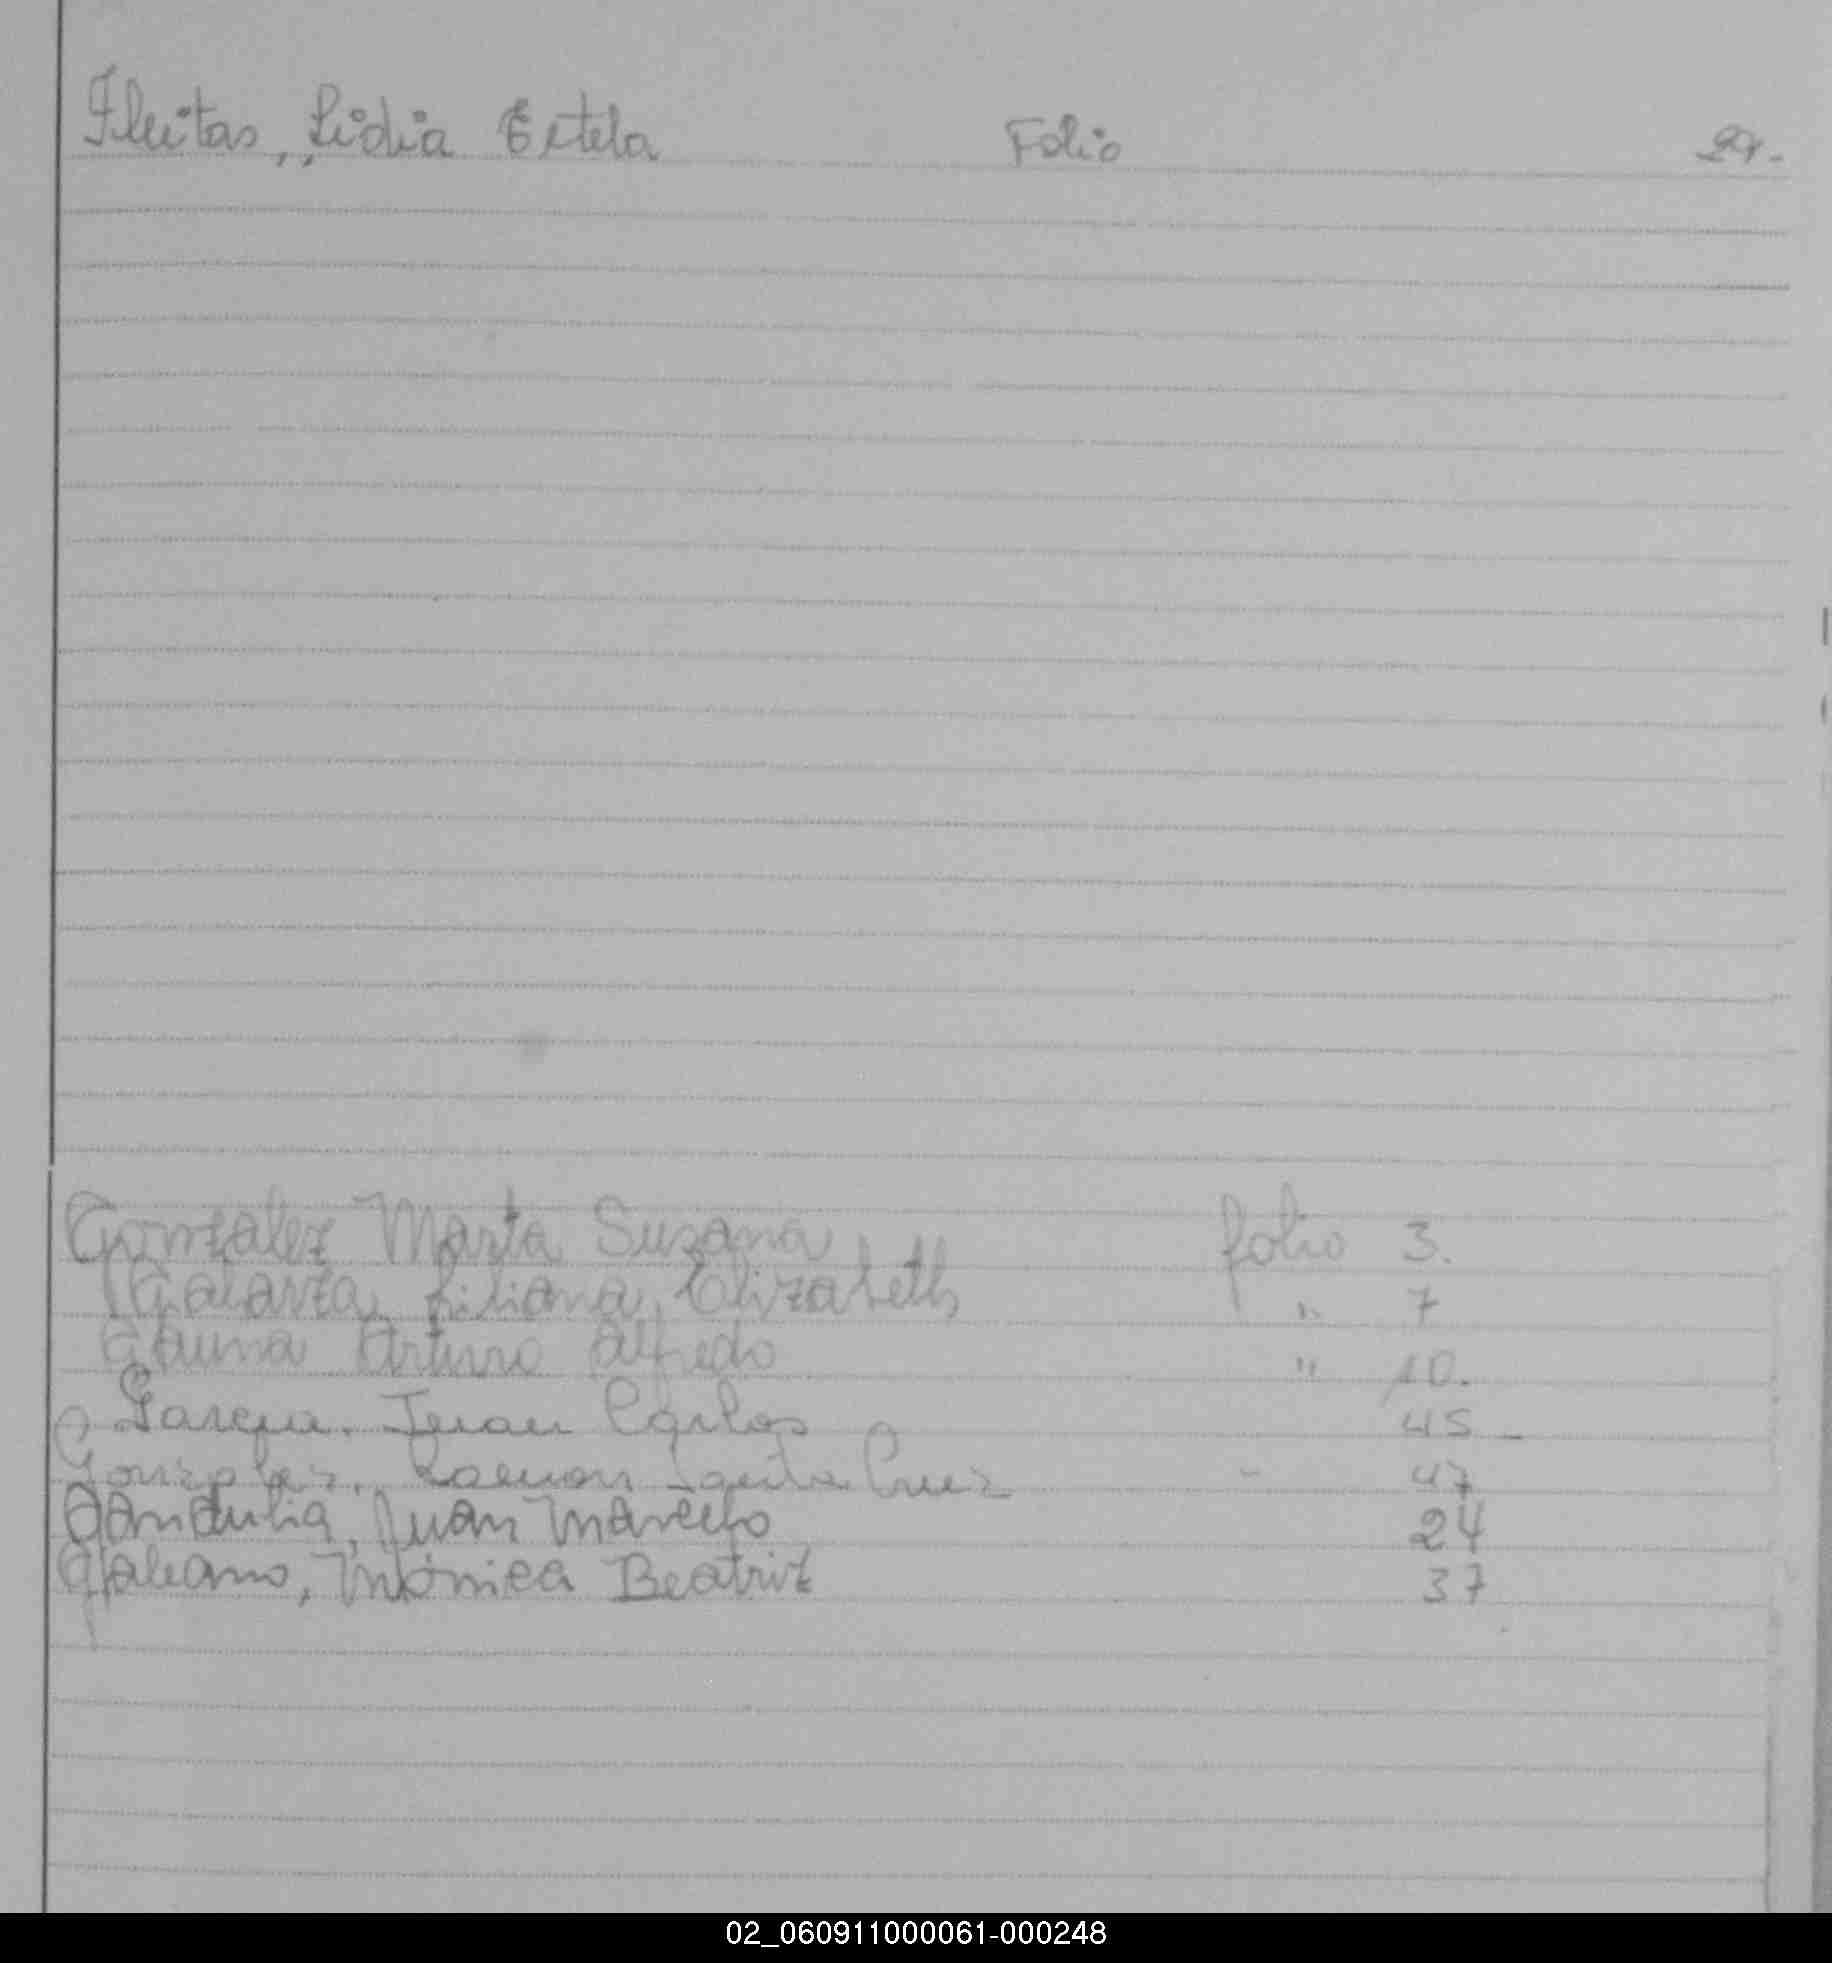 Fleitas, Lidia Estela Folio 29.
Gonzalez Marta Susana folio 3.
Galarza Liliana Elizabeth " 7
Gauna Arturo Alfredo " 10.
Garcia. Juan Carlos 45 -
Gonzalez. Ramon Santa Cruz - 47
Gandulia, Juan Marcelo 24
Galeano, Mónica Beatriz 37
02_060911000061-000248